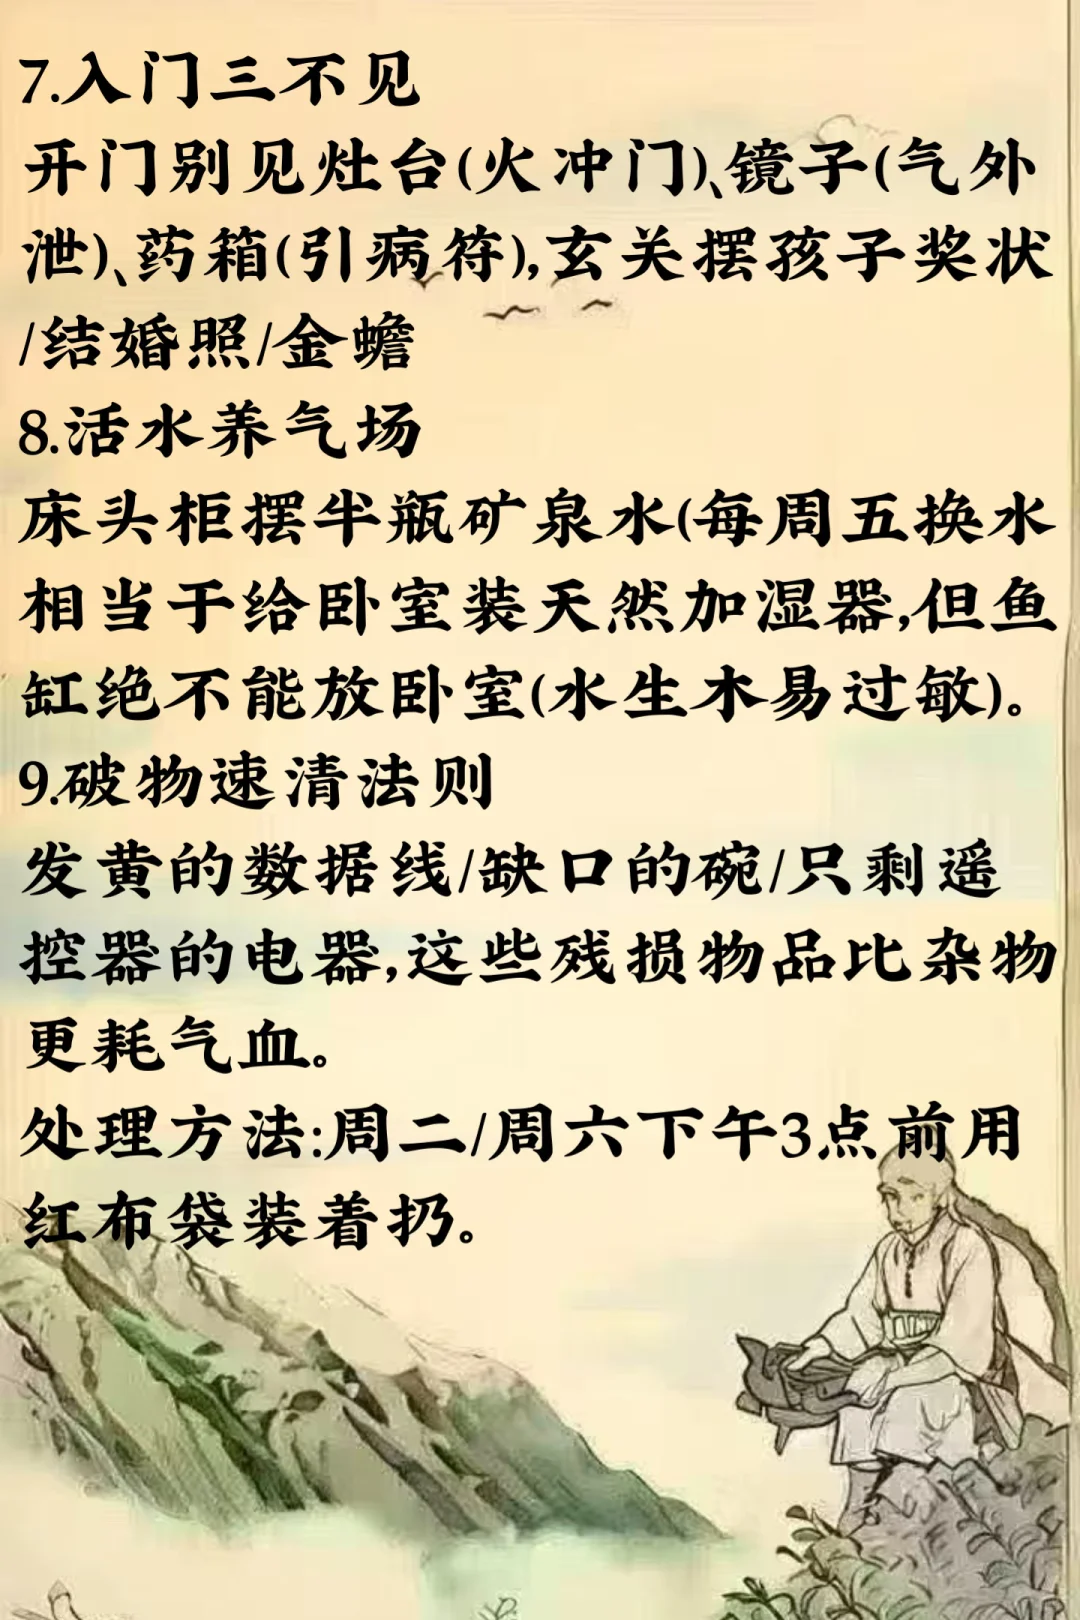 7.入门三不见
开门别见灶台(火冲门)、镜子(气外
泄)、药箱(引病符),玄关摆孩子奖状
/结婚照/金蟾
8.活水养气场
床头柜摆半瓶矿泉水(每周五换水
相当于给卧室装天然加湿器,但鱼
缸绝不能放卧室(水生木易过敏)。
9.破物速清法则
发黄的数据线/缺口的碗/只剩遥
控器的电器,这些残损物品比杂物
更耗气血。
处理方法:周二/周六下午3点前用
红布袋装着扔。